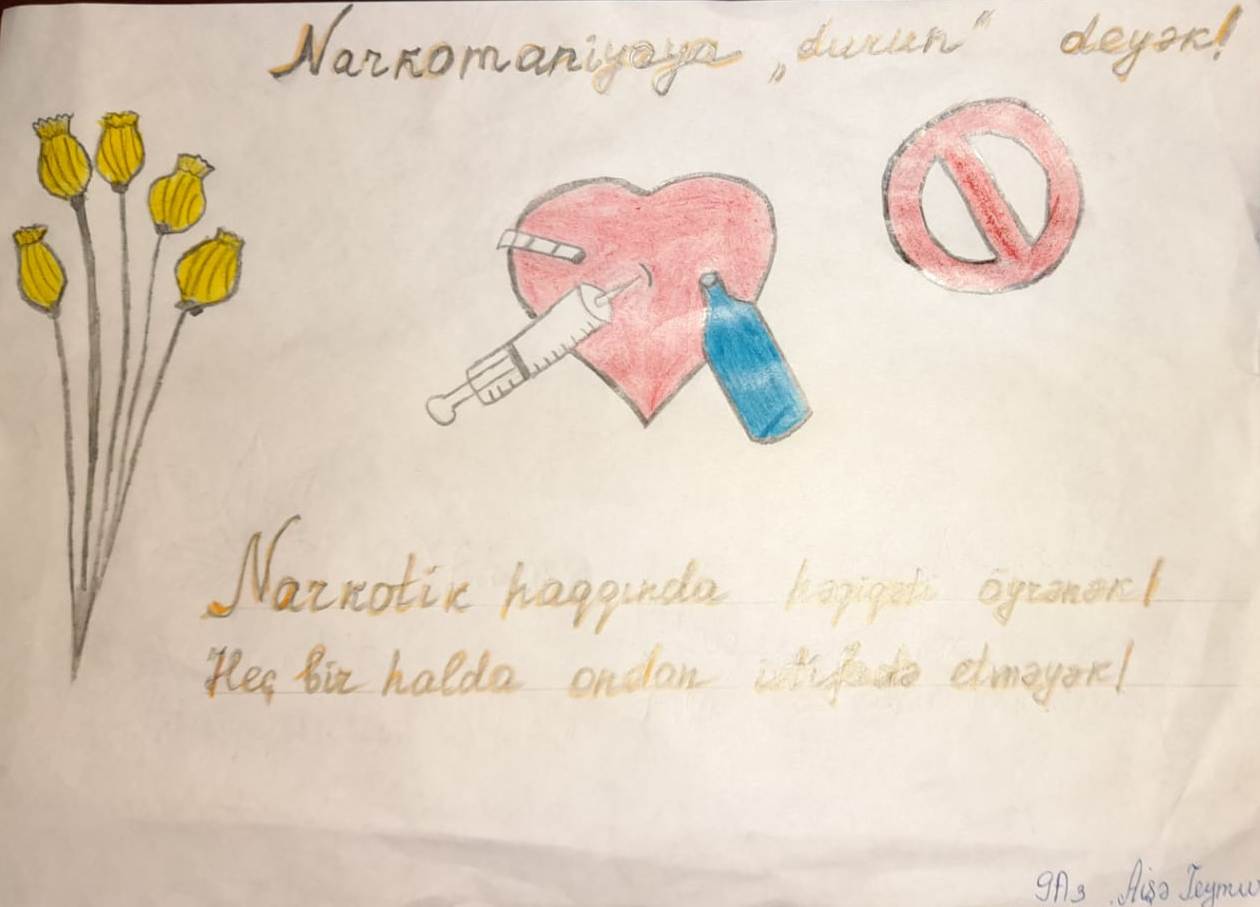 Narkomaniyaya „durun“ deyək!
Narkotik haqqında həqiqəti öyrənək!
Heç bir halda ondan istifadə etməyək!
9A3 Aişə Teymu